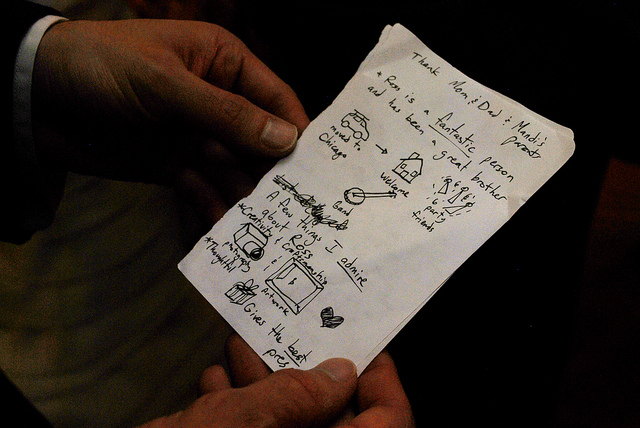 Thank Mom & Dad & Mandi's
parents
* Ross is a fantastic person
and has been a great brother
moved to
Chicago
Welcome
Band
party
friends
A few things I admire
about Ross
* Creativity &
photography
Artwork
* Thoughtful
Gives the best
pres